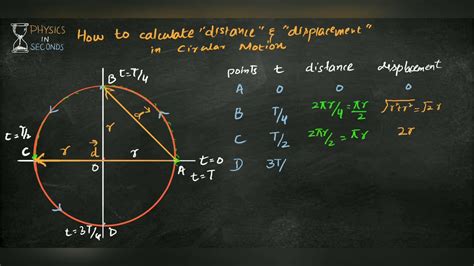 PHYSICS
IN
SECONDS
How to calculate "distance" & "displacement"
in Circular Motion
points t distance displacement
A 0 0 0
B T/4 2πr/4 = πr/2 √r²+r² = √2 r
C T/2 2πr/2 = πr 2r
D 3T/
B t=T/4
t=T/2
C
r
r
d
r
O
A
t=0
t=T
t=3T/4 D